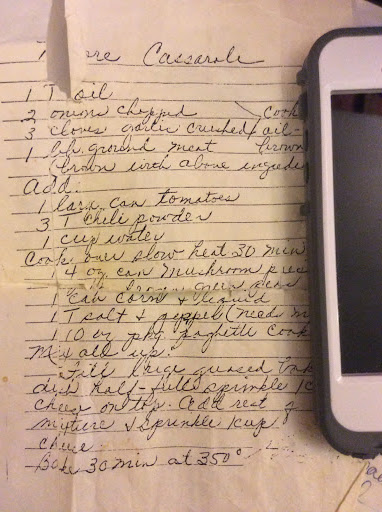 Casserole
1 T oil
2 onions chopped Cook
3 cloves garlic crushed oil-
1 lb ground meat brown
Brown with above ingredi
Add:
1 large can tomatoes
3 T chili powder
1 cup water
Cook over slow heat 30 min
1 4 oz can mushroom piec
1 can green peas
1 can corn & liquid
1 T salt & pepper (needs m
1 10 oz pkg spaghetti Cook
Mix all up.
Fill large greased bak
dish half-full sprinkle 1c
cheese on top. Add rest of
mixture & sprinkle 1 cup
cheese
Bake 30 min at 350°